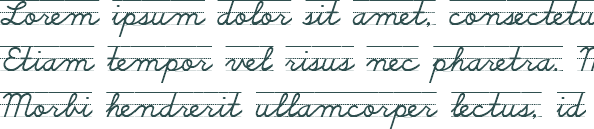 Lorem ipsum dolor sit amet, consectetu
Etiam tempor vel risus nec pharetra.
Morbi hendrerit ullamcorper lectus, id